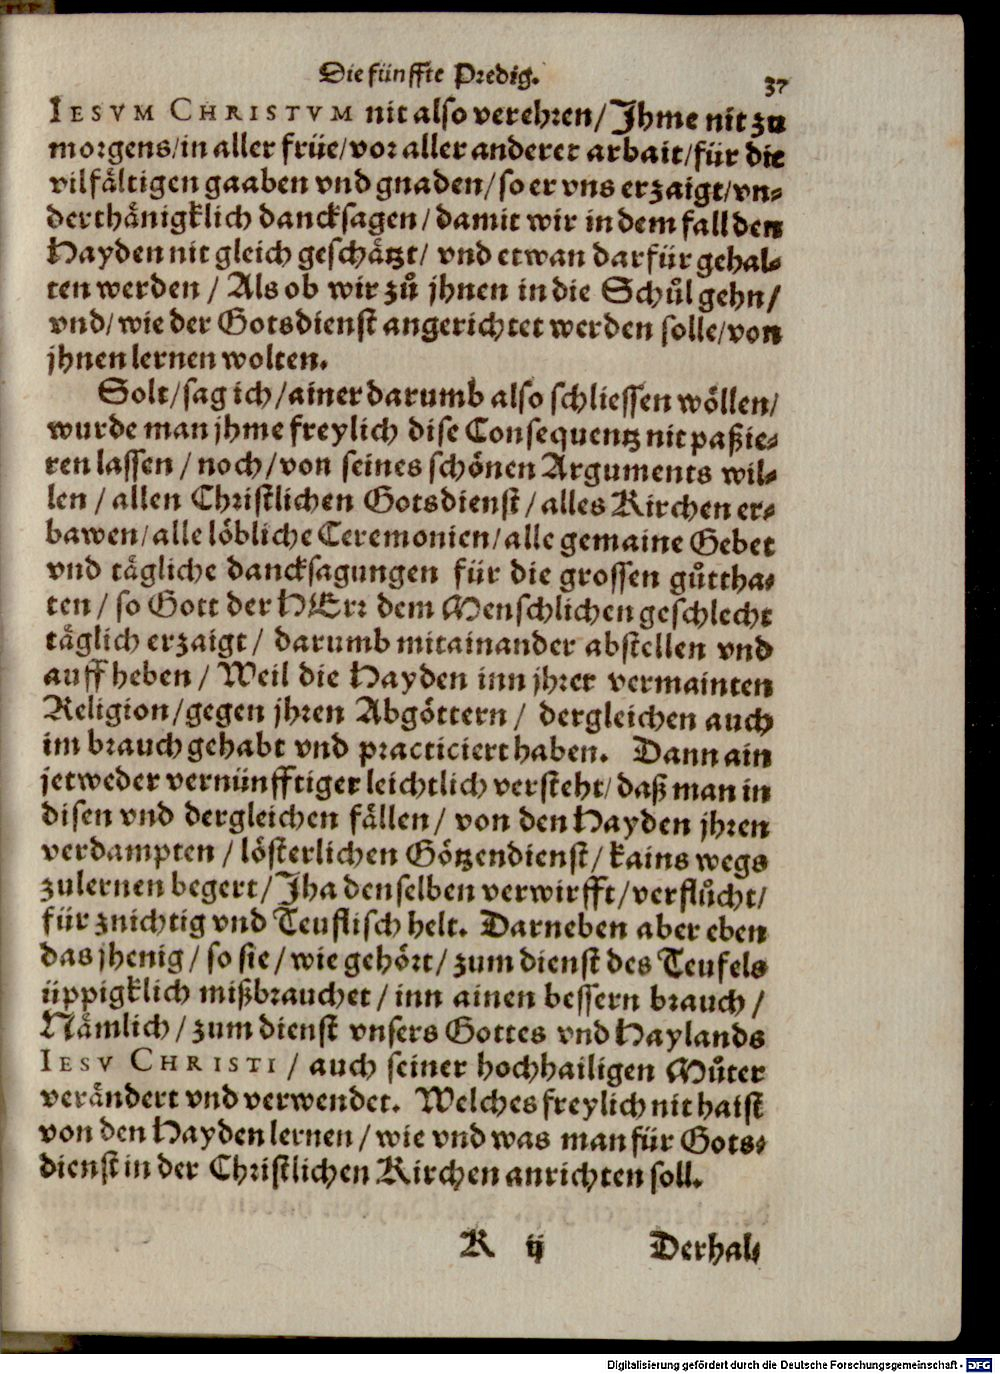 Die fünffte Predig.
37
IESVM CHRISTVM nit also verehren/ Jhme nit zu
morgens/ in aller früe/ vor aller anderer arbait/ für die
vilfåltigen gaaben vnd gnaden/ so er vns erzaigt/ vn-
derthånigklich dancksagen/ damit wir in dem fall den
Hayden nit gleich geschåtzt/ vnd etwan darfür gehal-
ten werden/ Als ob wir zů jhnen in die Schůl gehn/
vnd/ wie der Gotsdienst angerichtet werden solle/ von
jhnen lernen wolten.
Solt/ sag ich/ ainer darumb also schliessen wöllen/
wurde man jhme freylich dise Consequentz nit paßie-
ren lassen/ noch/ von seines schönen Arguments wil-
len/ allen Christlichen Gotsdienst/ alles Kirchen er-
bawen/ alle löbliche Ceremonien/ alle gemaine Gebet
vnd tågliche dancksagungen für die grossen gůttha-
ten/ so Gott der HErr dem Menschlichen geschlecht
tåglich erzaigt/ darumb mitainander abstellen vnd
auffheben/ Weil die Hayden inn jhrer vermainten
Religion/ gegen jhren Abgöttern/ dergleichen auch
im brauch gehabt vnd practiciert haben. Dann ain
jetweder vernünfftiger leichtlich versteht/ daß man in
disen vnd dergleichen fållen/ von den Hayden jhren
verdampten/ lösterlichen Götzendienst/ kains wegs
zulernen begert/ Jha denselben verwirfft/ verflůcht/
für znichtig vnd Teuflisch helt. Darneben aber eben
das jhenig/ so sie/ wie gehört/ zum dienst des Teufels
üppigklich mißbrauchet/ inn ainen bessern brauch/
Nåmlich/ zum dienst vnsers Gottes vnd Haylands
IESV CHRISTI/ auch seiner hochhailigen Můter
veråndert vnd verwendet. Welches freylich nit haist
von den Hayden lernen/ wie vnd was man für Gots-
dienst in der Christlichen Kirchen anrichten soll.
K ij Derhal-
Digitalisierung gefördert durch die Deutsche Forschungsgemeinschaft - DFG